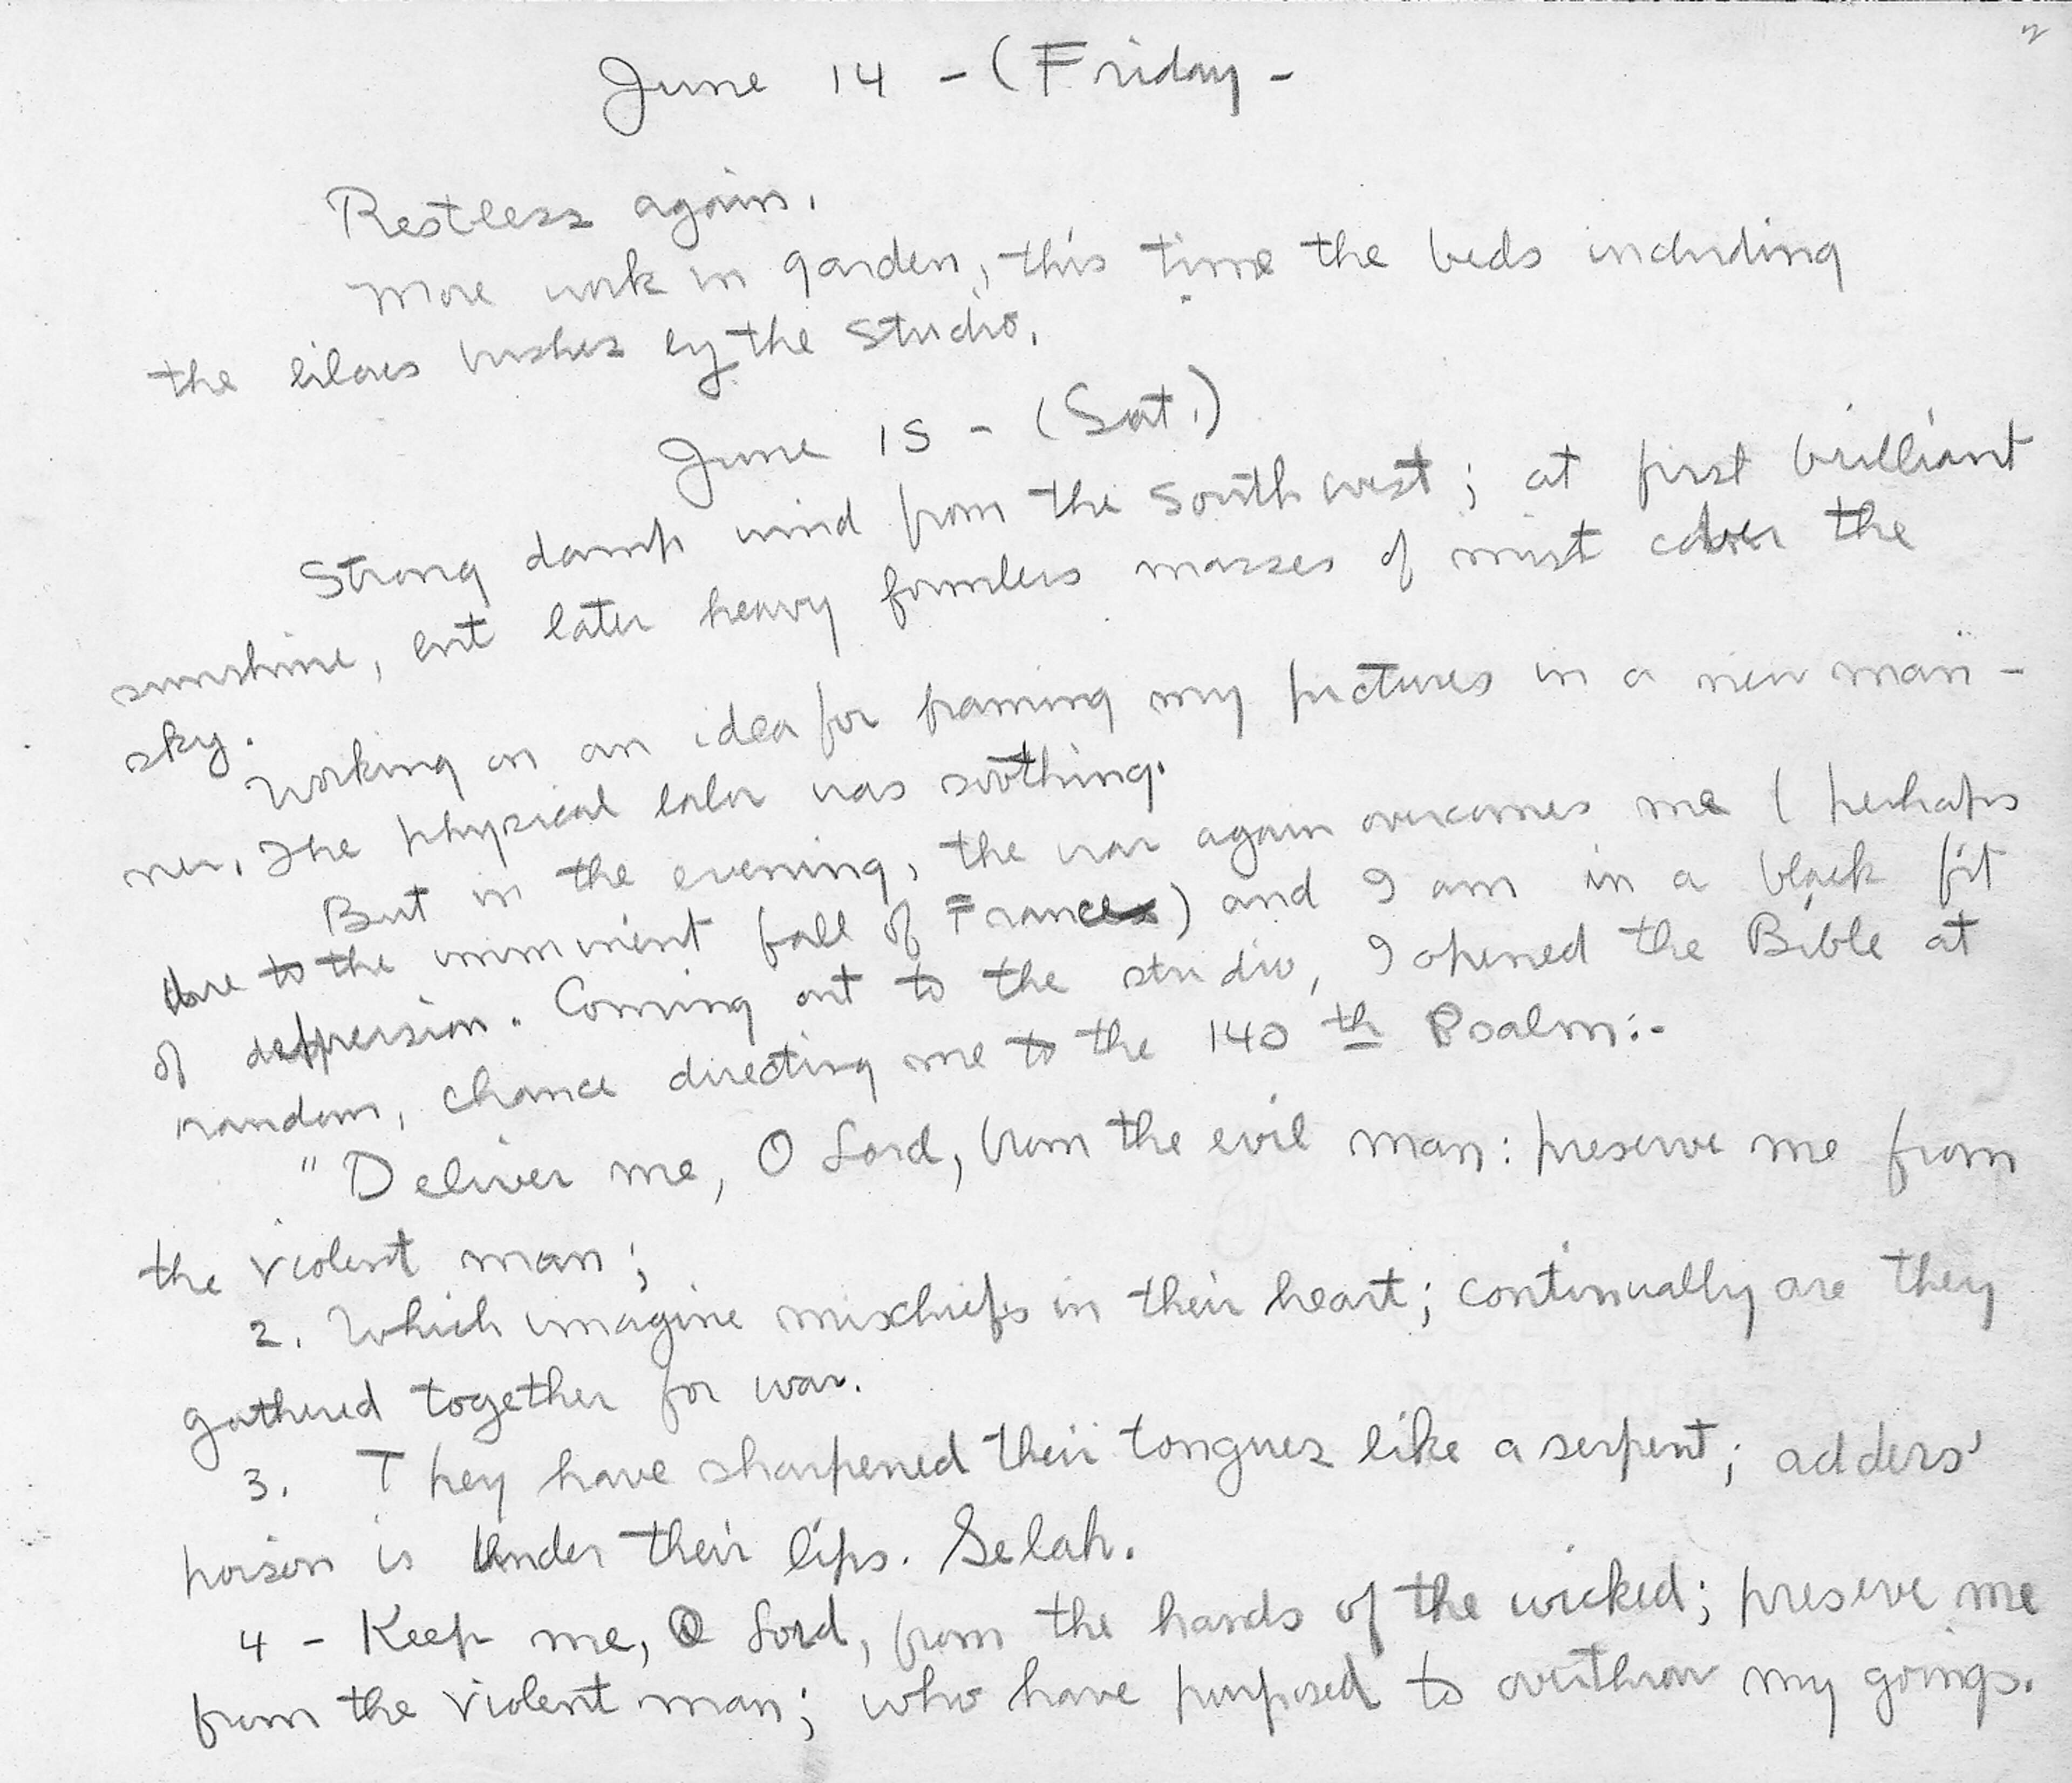 2
June 14 - (Friday -
Restless again.
More work in garden, this time the beds including
the lilacs bushes by the studio.
June 15 - (Sat.)
Strong damp wind from the southwest; at first brilliant
sunshine, but later heavy formless masses of mist cover the
sky.
Working on an idea for framing my pictures in a new man-
ner. The physical labor was soothing.
But in the evening, the war again overcomes me (perhaps
due to the imminent fall of France) and I am in a black fit
of deppression. Coming out to the studio, I opened the Bible at
random, chance directing me to the 140th Psalm:-
"Deliver me, O Lord, from the evil man: preserve me from
the violent man;
2. Which imagine mischiefs in their heart; continually are they
gathered together for war.
3. They have sharpened their tongues like a serpent; adders'
poison is under their lips. Selah.
4 - Keep me, O Lord, from the hands of the wicked; preserve me
from the violent man; who have purposed to overthrow my goings.